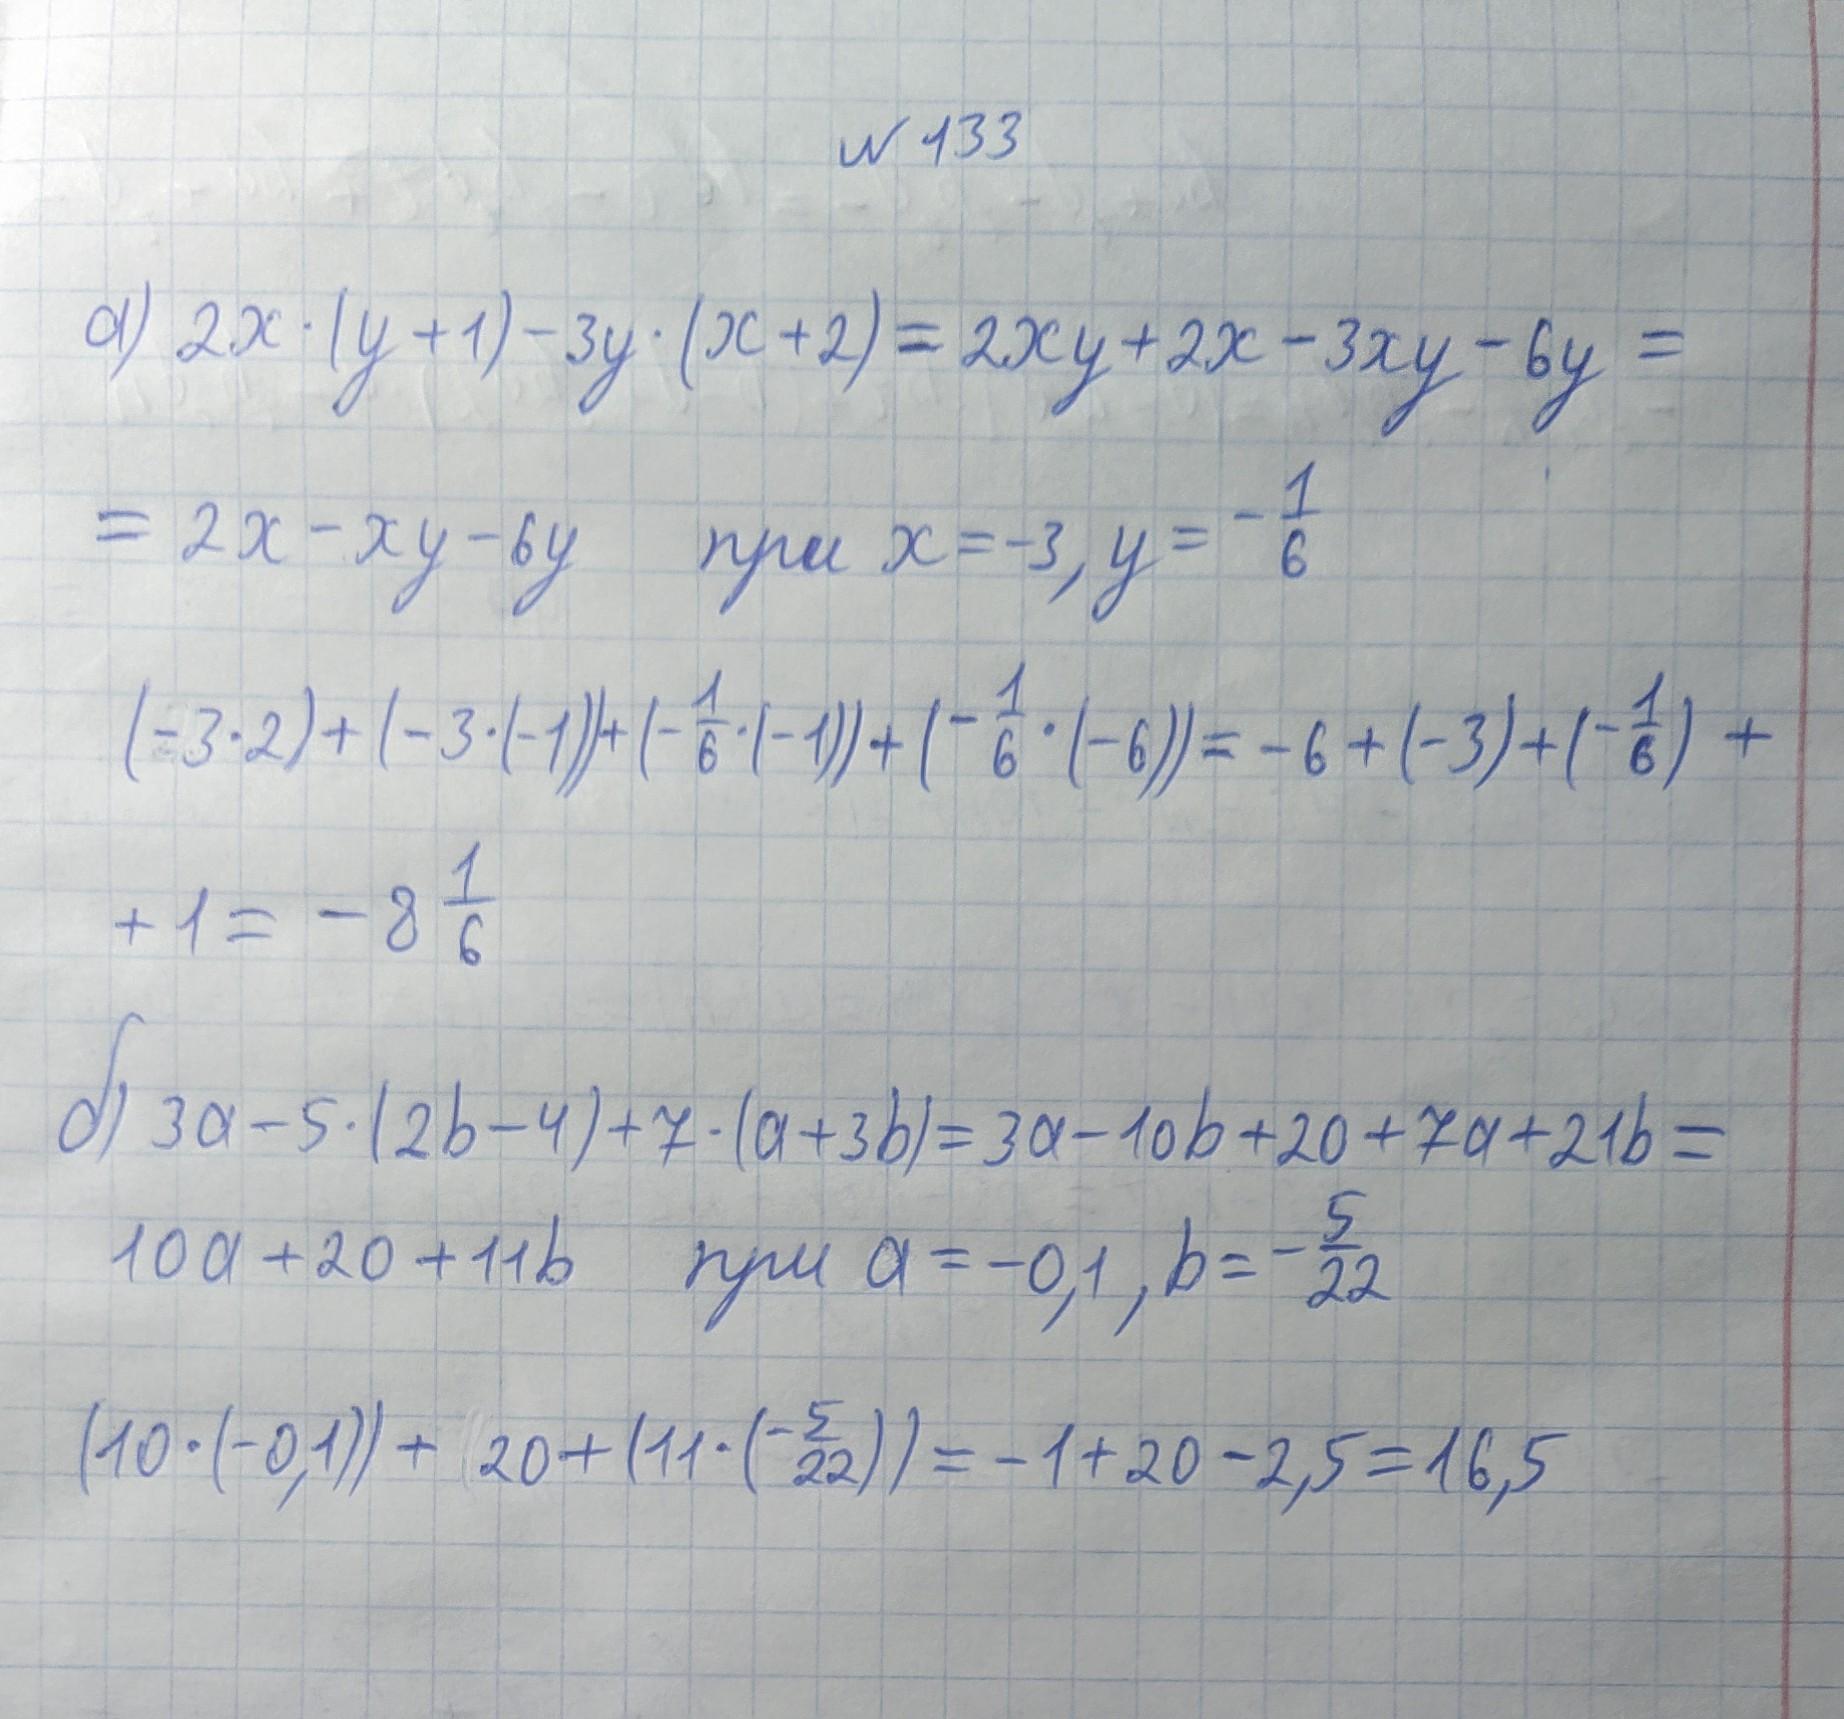 № 133
а) 2x·(y+1)-3y·(x+2)=2xy+2x-3xy-6y=
=2x-xy-6y при x=-3, y=-1/6
(-3·2)+(-3·(-1))+(-1/6·(-1))+(-1/6·(-6))=-6+(-3)+(-1/6)+
+1=-8 1/6
б) 3a-5·(2b-4)+7·(a+3b)=3a-10b+20+7a+21b=
10a+20+11b при a=-0,1, b=-5/22
(10·(-0,1))+20+(11·(-5/22))=-1+20-2,5=16,5